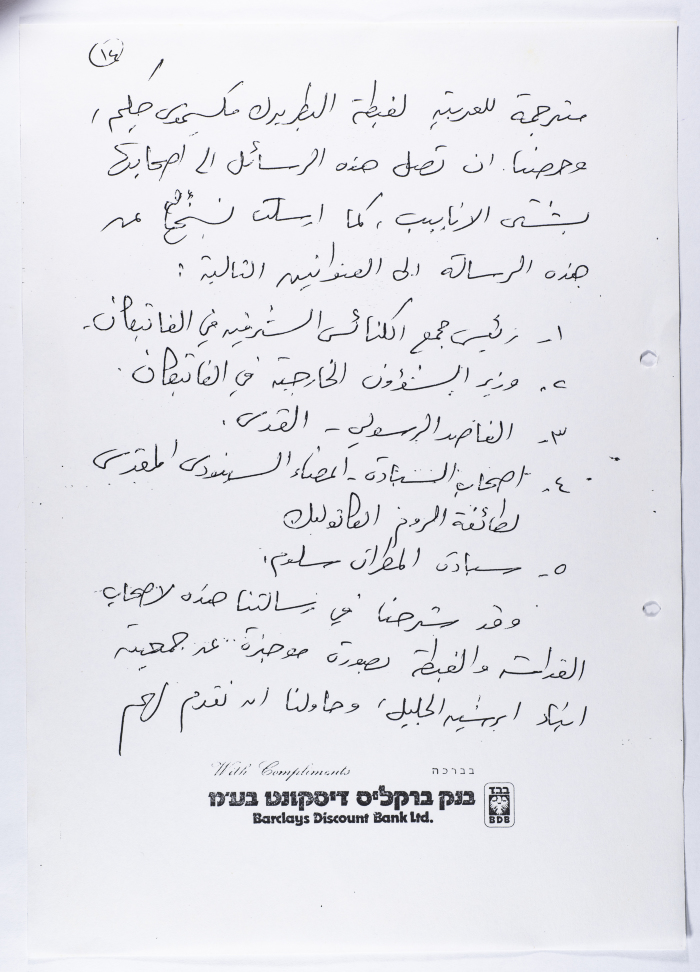 ١٤
مترجمة للعربية لغبطة البطريرك مكسيموس حكيم،
وحرصنا ان تصل هذه الرسائل الى اصحابها
بشتى الانابيب، كما ارسلت نسخ من
هذه الرسالة الى العنوانين التالية :
١- رئيس مجمع الكنائس الشرقية في الفاتيكان.
٢- وزير الشؤون الخارجية في الفاتيكان.
٣- القاصد الرسولي - القدس.
٤- اصحاب السيادة - اعضاء السينودس المقدس
لطائفة الروم الكاثوليك
٥- سيادة المطران سلوم.
وقد شرحنا في رسالتنا هذه لاصحاب
القداسة والغبطة بصورة موجزة عن جمعية
ابناء ابرشية الجليل، وحاولنا ان نقدم لهم
With Compliments בברכה
בנק ברקליס דיסקונט בע"מ
Barclays Discount Bank Ltd.
בבד
BDB